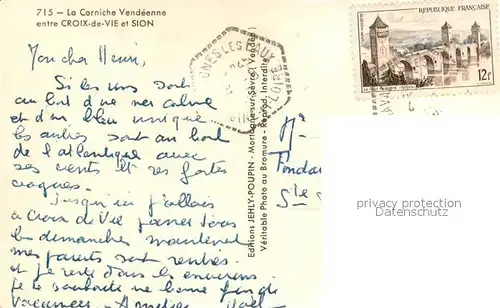 715 - La Corniche Vendéenne
entre CROIX-de-VIE et SION
Mon cher Henri,
Si les uns sont
au bord d'une mer calme
et d'un bleu unique
les autres sont au bord
de l'atlantique avec
ses vents et ses fortes
vagues.
Jusqu'ici j'allais
à Croix de Vie passer tous
les dimanches maintenant
mes parents sont rentrés
et je reste dans les environs.
Je te souhaite une bonne fin de
vacances - Amitiés
Editions JEHLY-POUPIN - Mortagne-sur-Sèvre (Vendée)
Véritable Photo au Bromure - Reprod. Interdite
LOIRE
POSTES
REPUBLIQUE FRANÇAISE
12F
privacy protection
Datenschutz